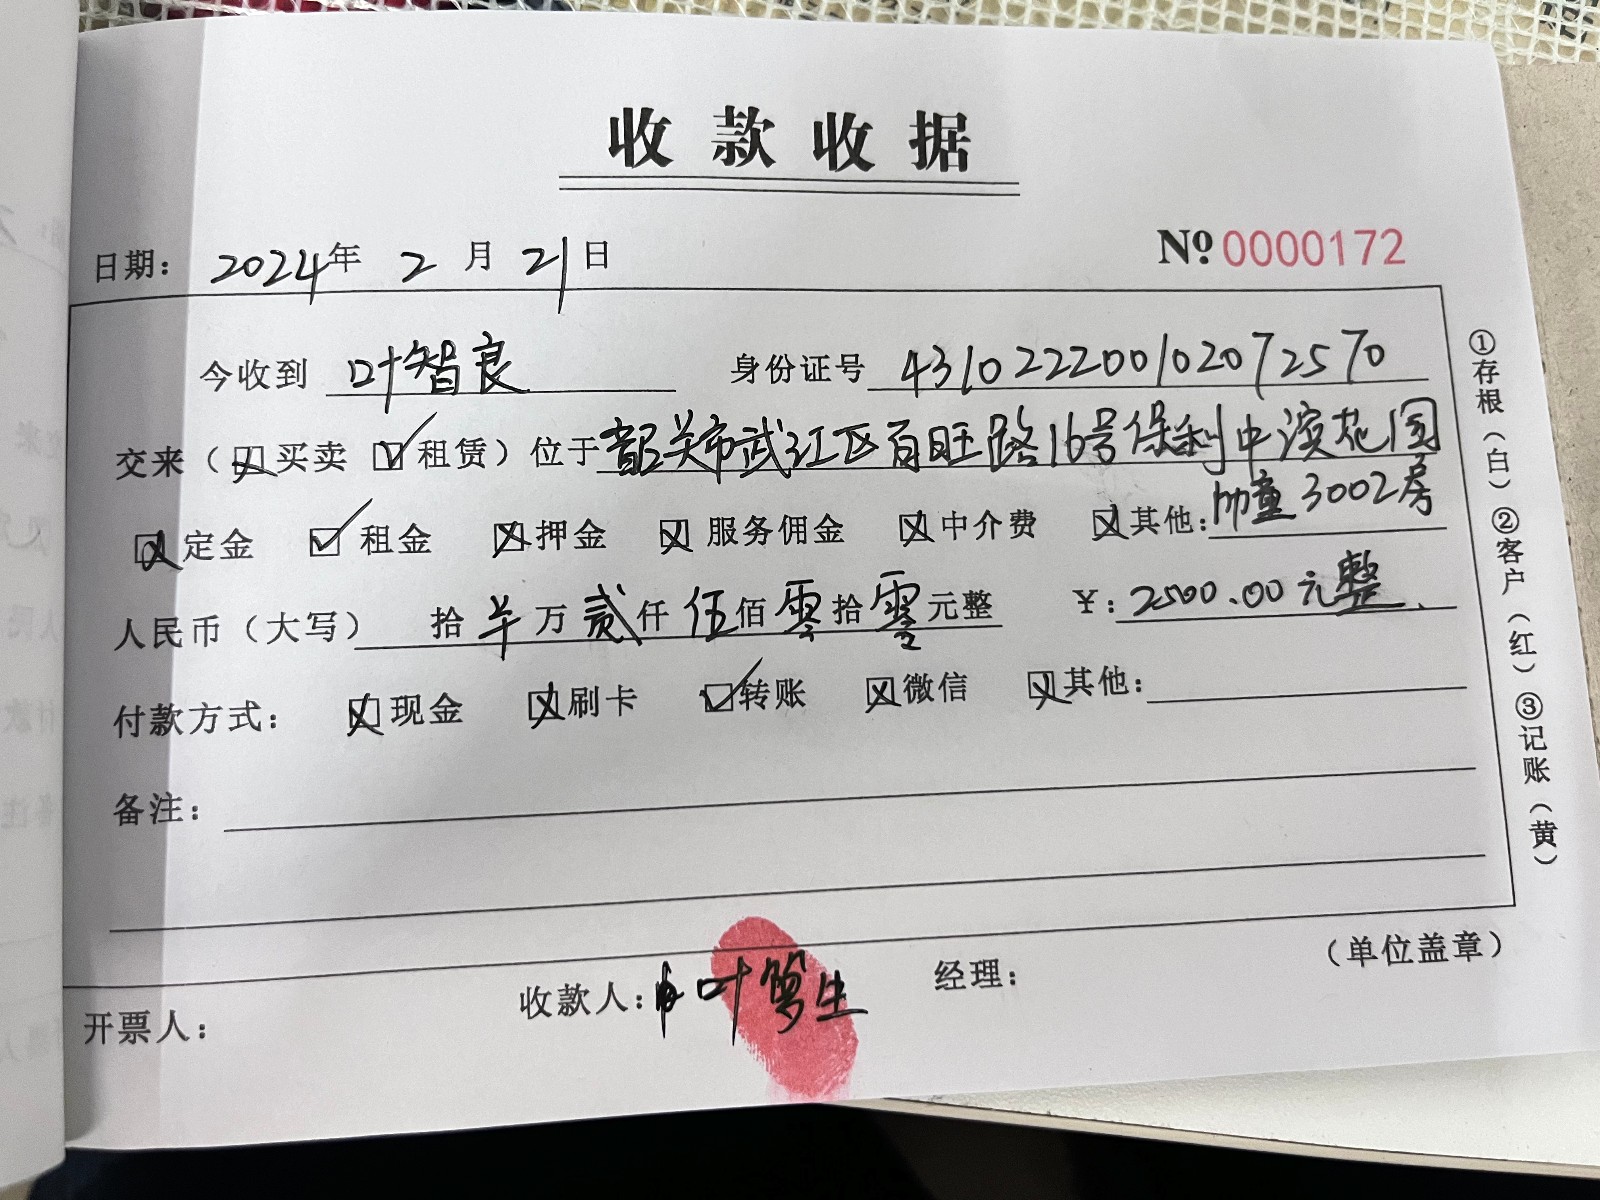 收款收据
日期： 2024年 2 月 21日
№ 0000172
今收到 叶智良 身份证号 431022200102072570
交来（☒买卖 ☑租赁）位于韶关市武江区百旺路16号保利中滨花园
3002房
☒定金 ☑租金 ☒押金 ☒服务佣金 ☒中介费 ☒其他:
人民币（大写） 拾 万 贰仟 伍佰 零拾 零元整 ¥: 2500.00元整
付款方式： ☒现金 ☒刷卡 ☑转账 ☒微信 ☒其他:
备注：
开票人： 收款人: 叶 生 经理： （单位盖章）
①存根（白）②客户（红）③记账（黄）